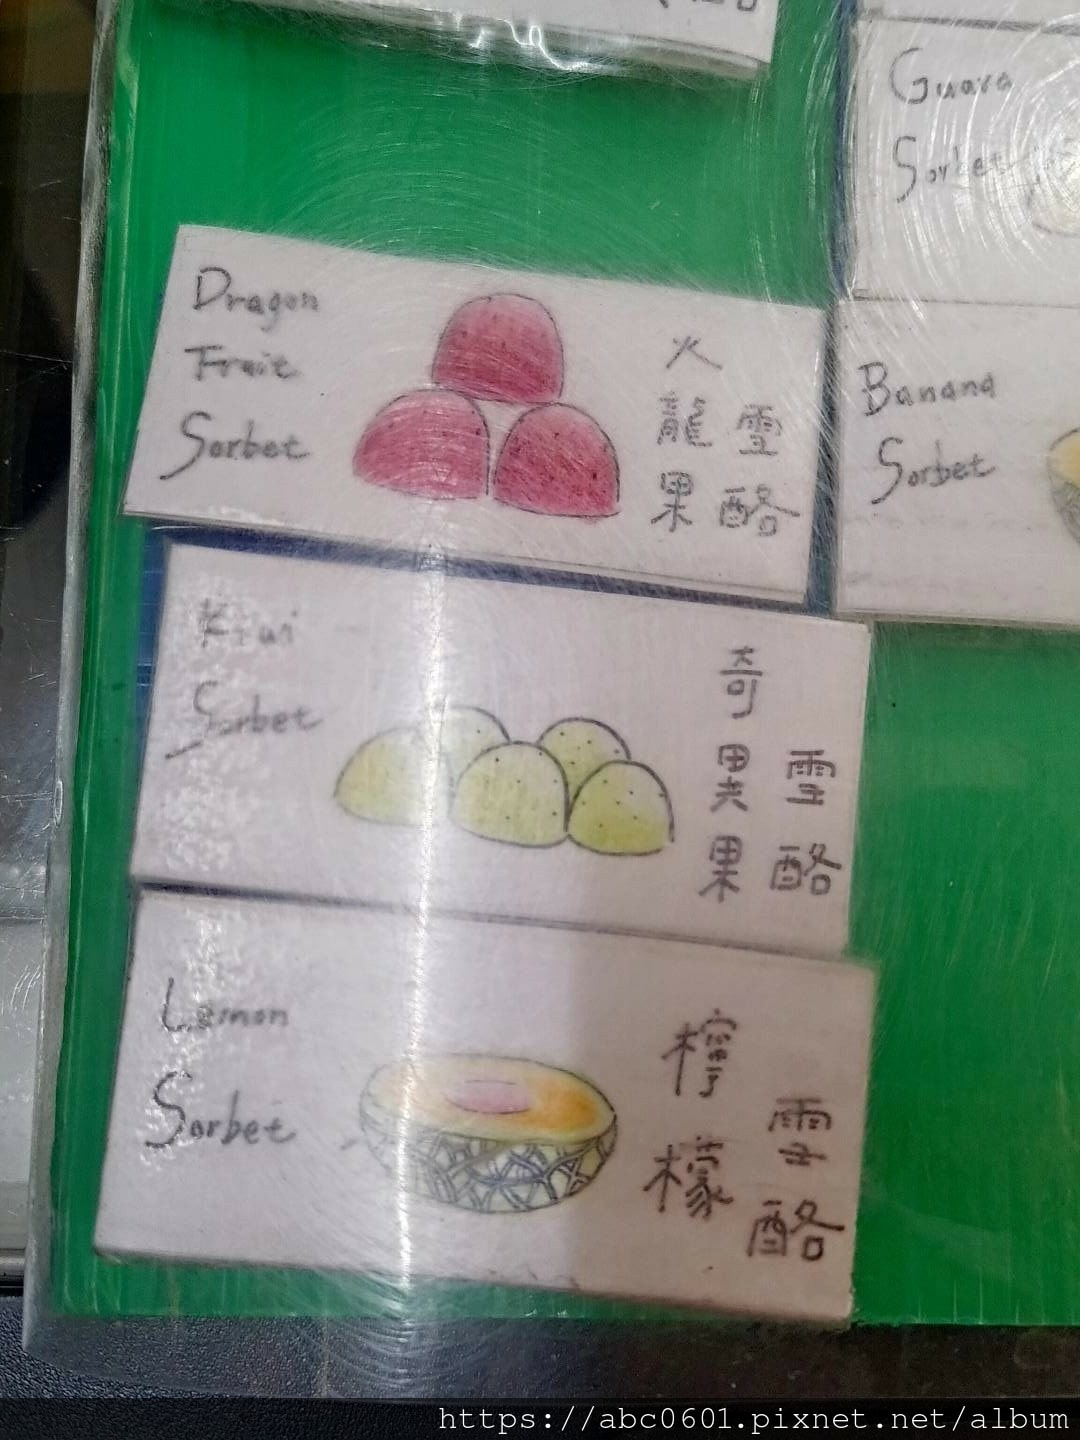 Guava
Sorbet
Dragon
Fruit
Sorbet
火龍果
雪酪
Banana
Sorbet
Kiwi
Sorbet
奇異果
雪酪
Lemon
Sorbet
檸檬
雪酪
https://abc0601.pixnet.net/album